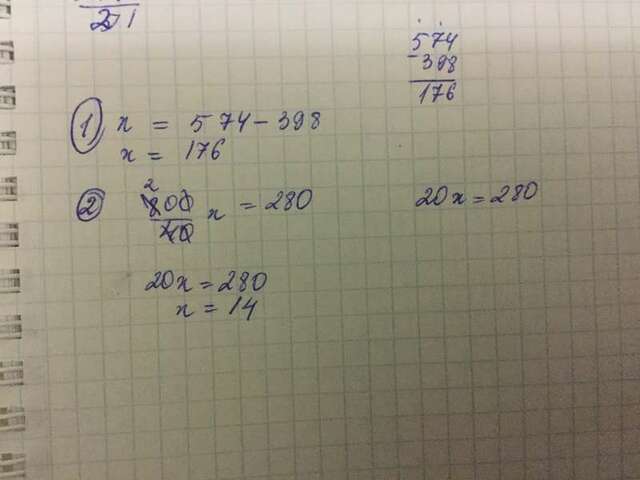 271
574
-398
176
1) x = 574 - 398
x = 176
2) 800/40 x = 280
2
20x = 280
20x = 280
x = 14